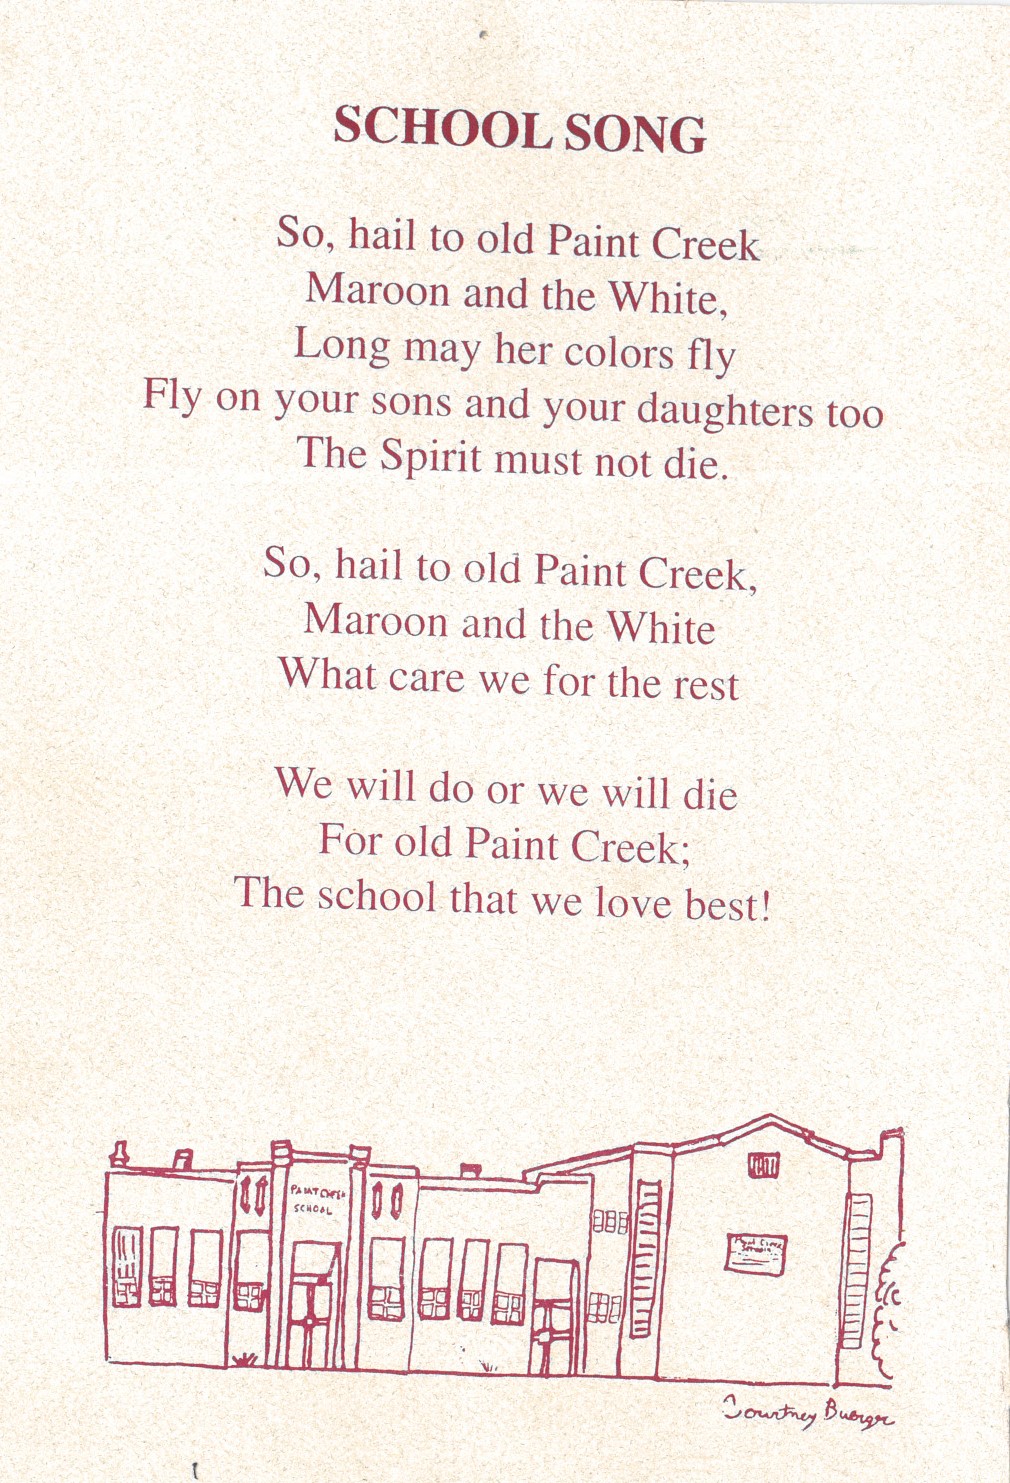 SCHOOL SONG
So, hail to old Paint Creek
Maroon and the White,
Long may her colors fly
Fly on your sons and your daughters too
The Spirit must not die.
So, hail to old Paint Creek,
Maroon and the White
What care we for the rest
We will do or we will die
For old Paint Creek;
The school that we love best!
PAINT CREEK
SCHOOL
Paint Creek
Courtney Buerger